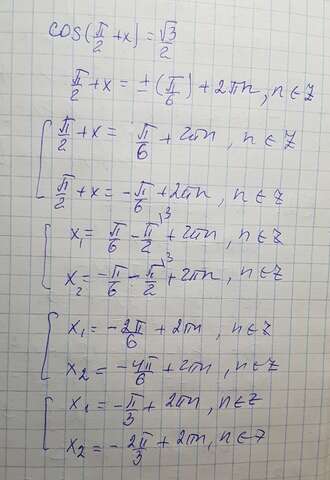 cos(π/2 + x) = √3/2
π/2 + x = ±(π/6) + 2πn, n ∈ Z
π/2 + x = π/6 + 2πn, n ∈ Z
π/2 + x = -π/6 + 2πn, n ∈ Z
x₁ = π/6 - π/2 \3 + 2πn, n ∈ Z
x₂ = -π/6 - π/2 \3 + 2πn, n ∈ Z
x₁ = -2π/6 + 2πn, n ∈ Z
x₂ = -4π/6 + 2πn, n ∈ Z
x₁ = -π/3 + 2πn, n ∈ Z
x₂ = -2π/3 + 2πn, n ∈ Z